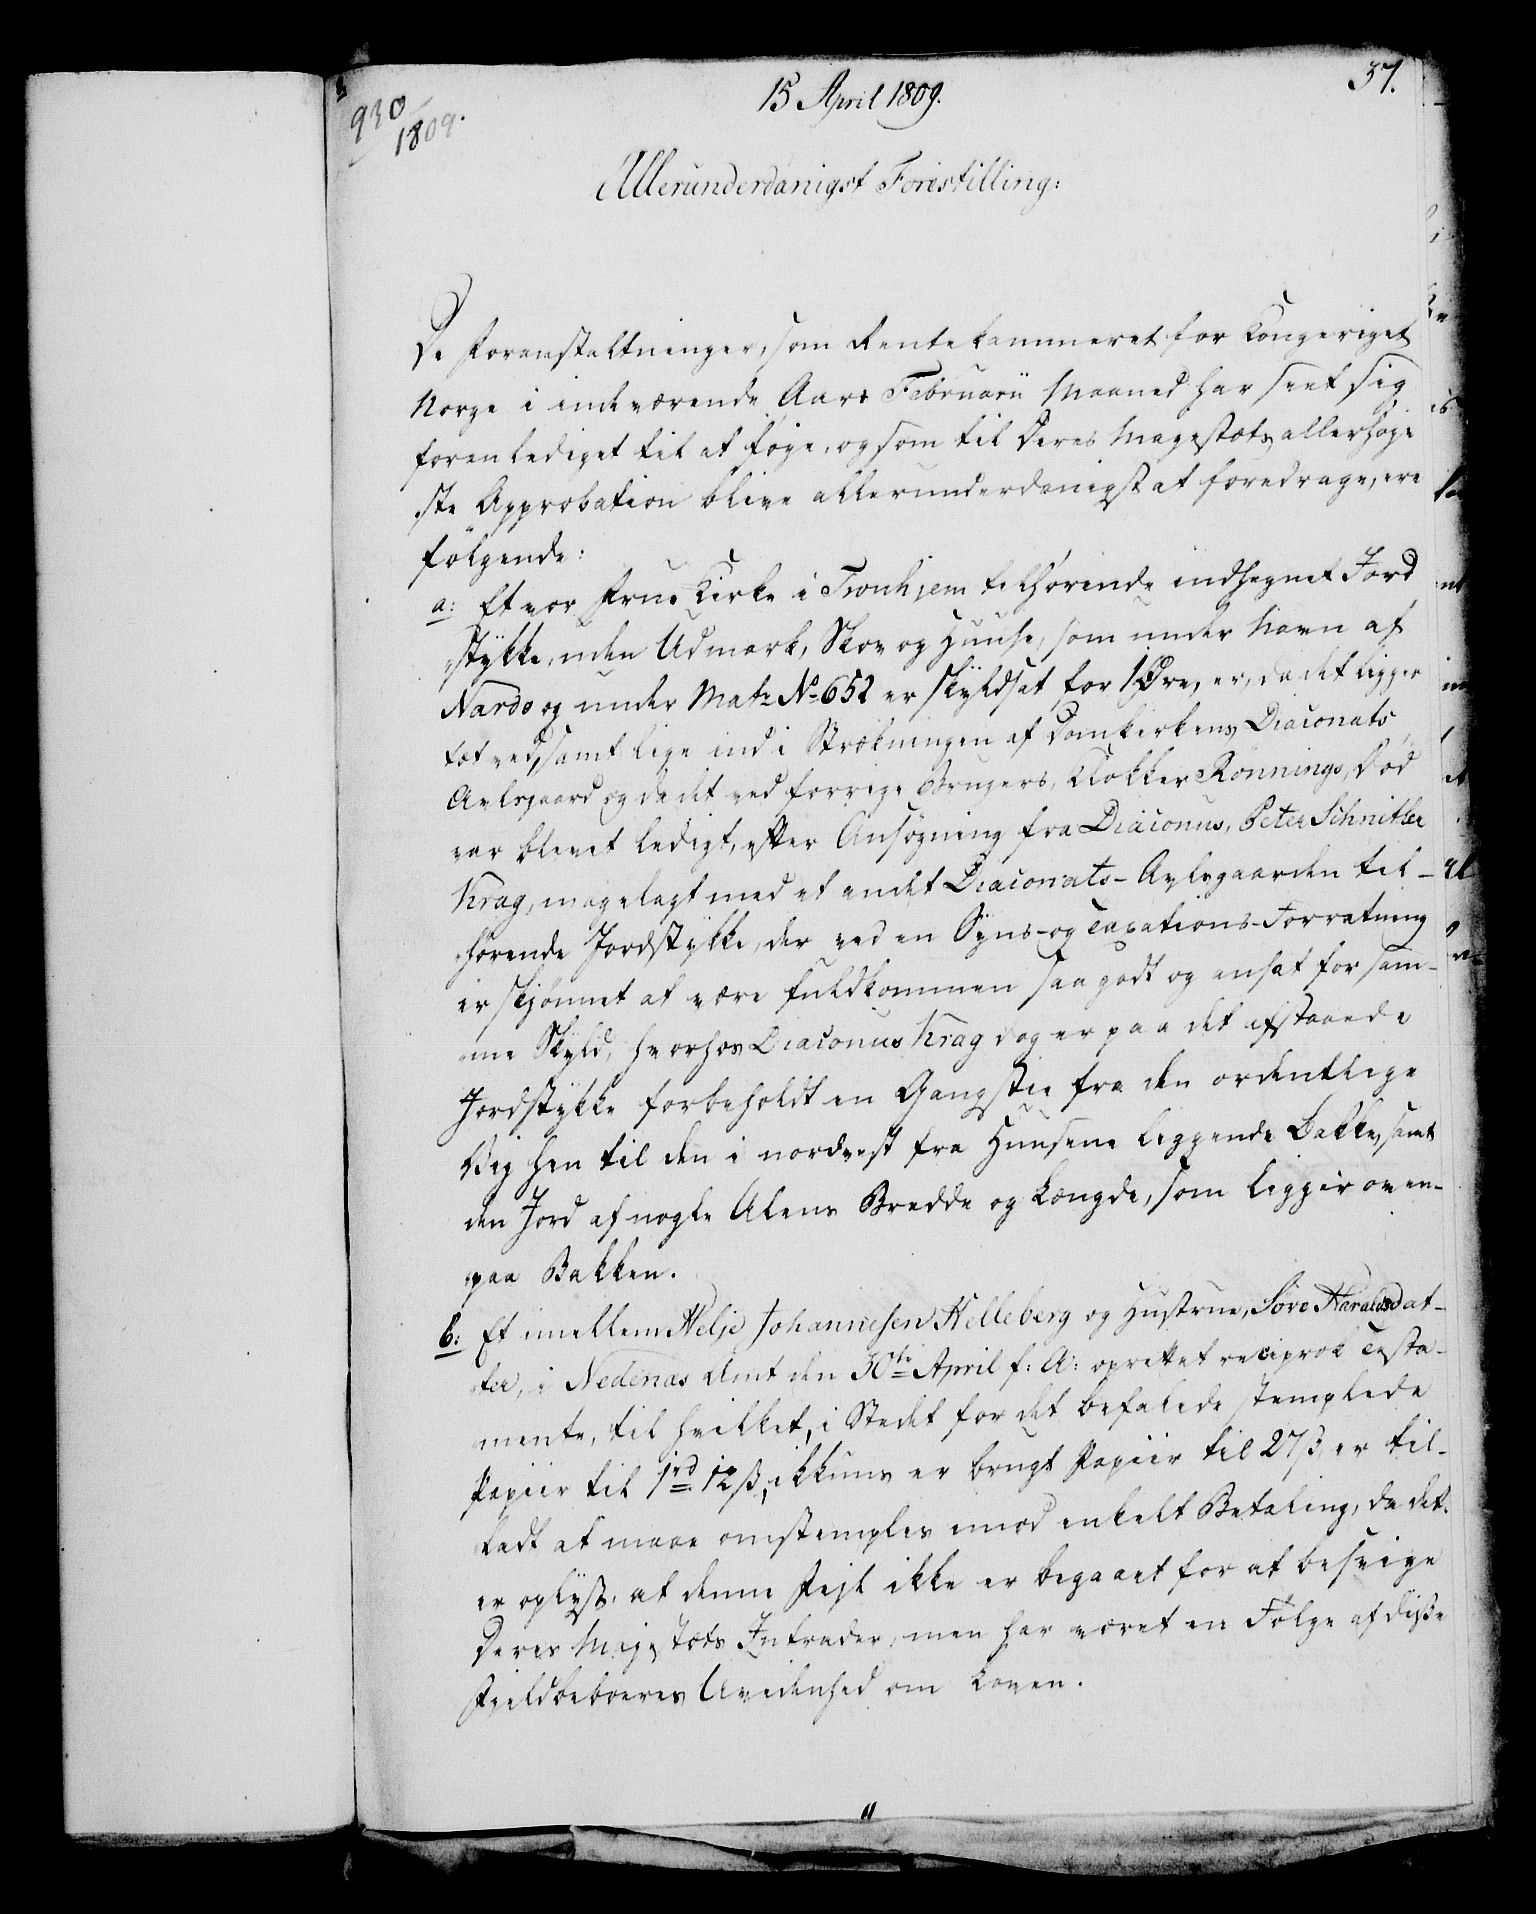 930/1809.
15 April 1809.
37.
Allerunderdanigst Forestilling:
De Foranstaltninger, som Rentekammeret for Kongeriget
Norge i indeværende Aars Februarii Maaned har seet sig
foranlediget til at føje, og som til Deres Majestæts allerhøje
ste Approbation blive allerunderdanigst at foredrage, ere
følgende:
a: Et vor Frue Kirke i Tronhjem tilhørende indhegnet Jord
stykke, uden Udmark, Skov og Huuse, som under Navn af
Nardo og under Matr No 652 er skyldsat for 1 Øre, er, da det ligger
tæt ved, samt lige ind i Strækningen af Domkirkens Diaconats
Avlsgaard og da det ved forrige Brugers, Klokker Rønnings, Død
var blevet ledigt, efter Ansøgning fra Diaconus, Peter Schnitler
Krag, magelagt med et andet Diaconats-Avlsgaarden til-
hørende Jordstykke, der ved en Syns- og Taxations-Forretning
er skjønnet at være fuldkommen saa godt og ansat for sam-
me Skyld, hvorhos Diaconus Krag dog er paa det afstaaede
Jordstykke forbeholdt en Gangstie fra den ordentlige
Vej hen til den i nordvest fra Huusene liggende Bakke, samt
den Jord af nogle Alens Bredde og Længde, som ligger oven-
paa Bakken.
b: Et imellem Helje Johannesen Helleberg og Hustrue, Sove Haraldsdat-
ter, i Nedenæs Amt den 30te April f: A: oprettet reciprok Testa-
mente, til hvilket, i Stedet for det befalede stemplede
Papiir til 1rd 12 ß, ikkuns er brugt Papiir til 27 ß, er til-
ladt at maae omstemples imod enkelt Betaling, da det
er oplyst, at denne Fejl ikke er begaaet for at besvige
Deres Majestæts Intrader, men har været en Følge af disse
Fjeldbeboeres Uvidenhed om Loven.